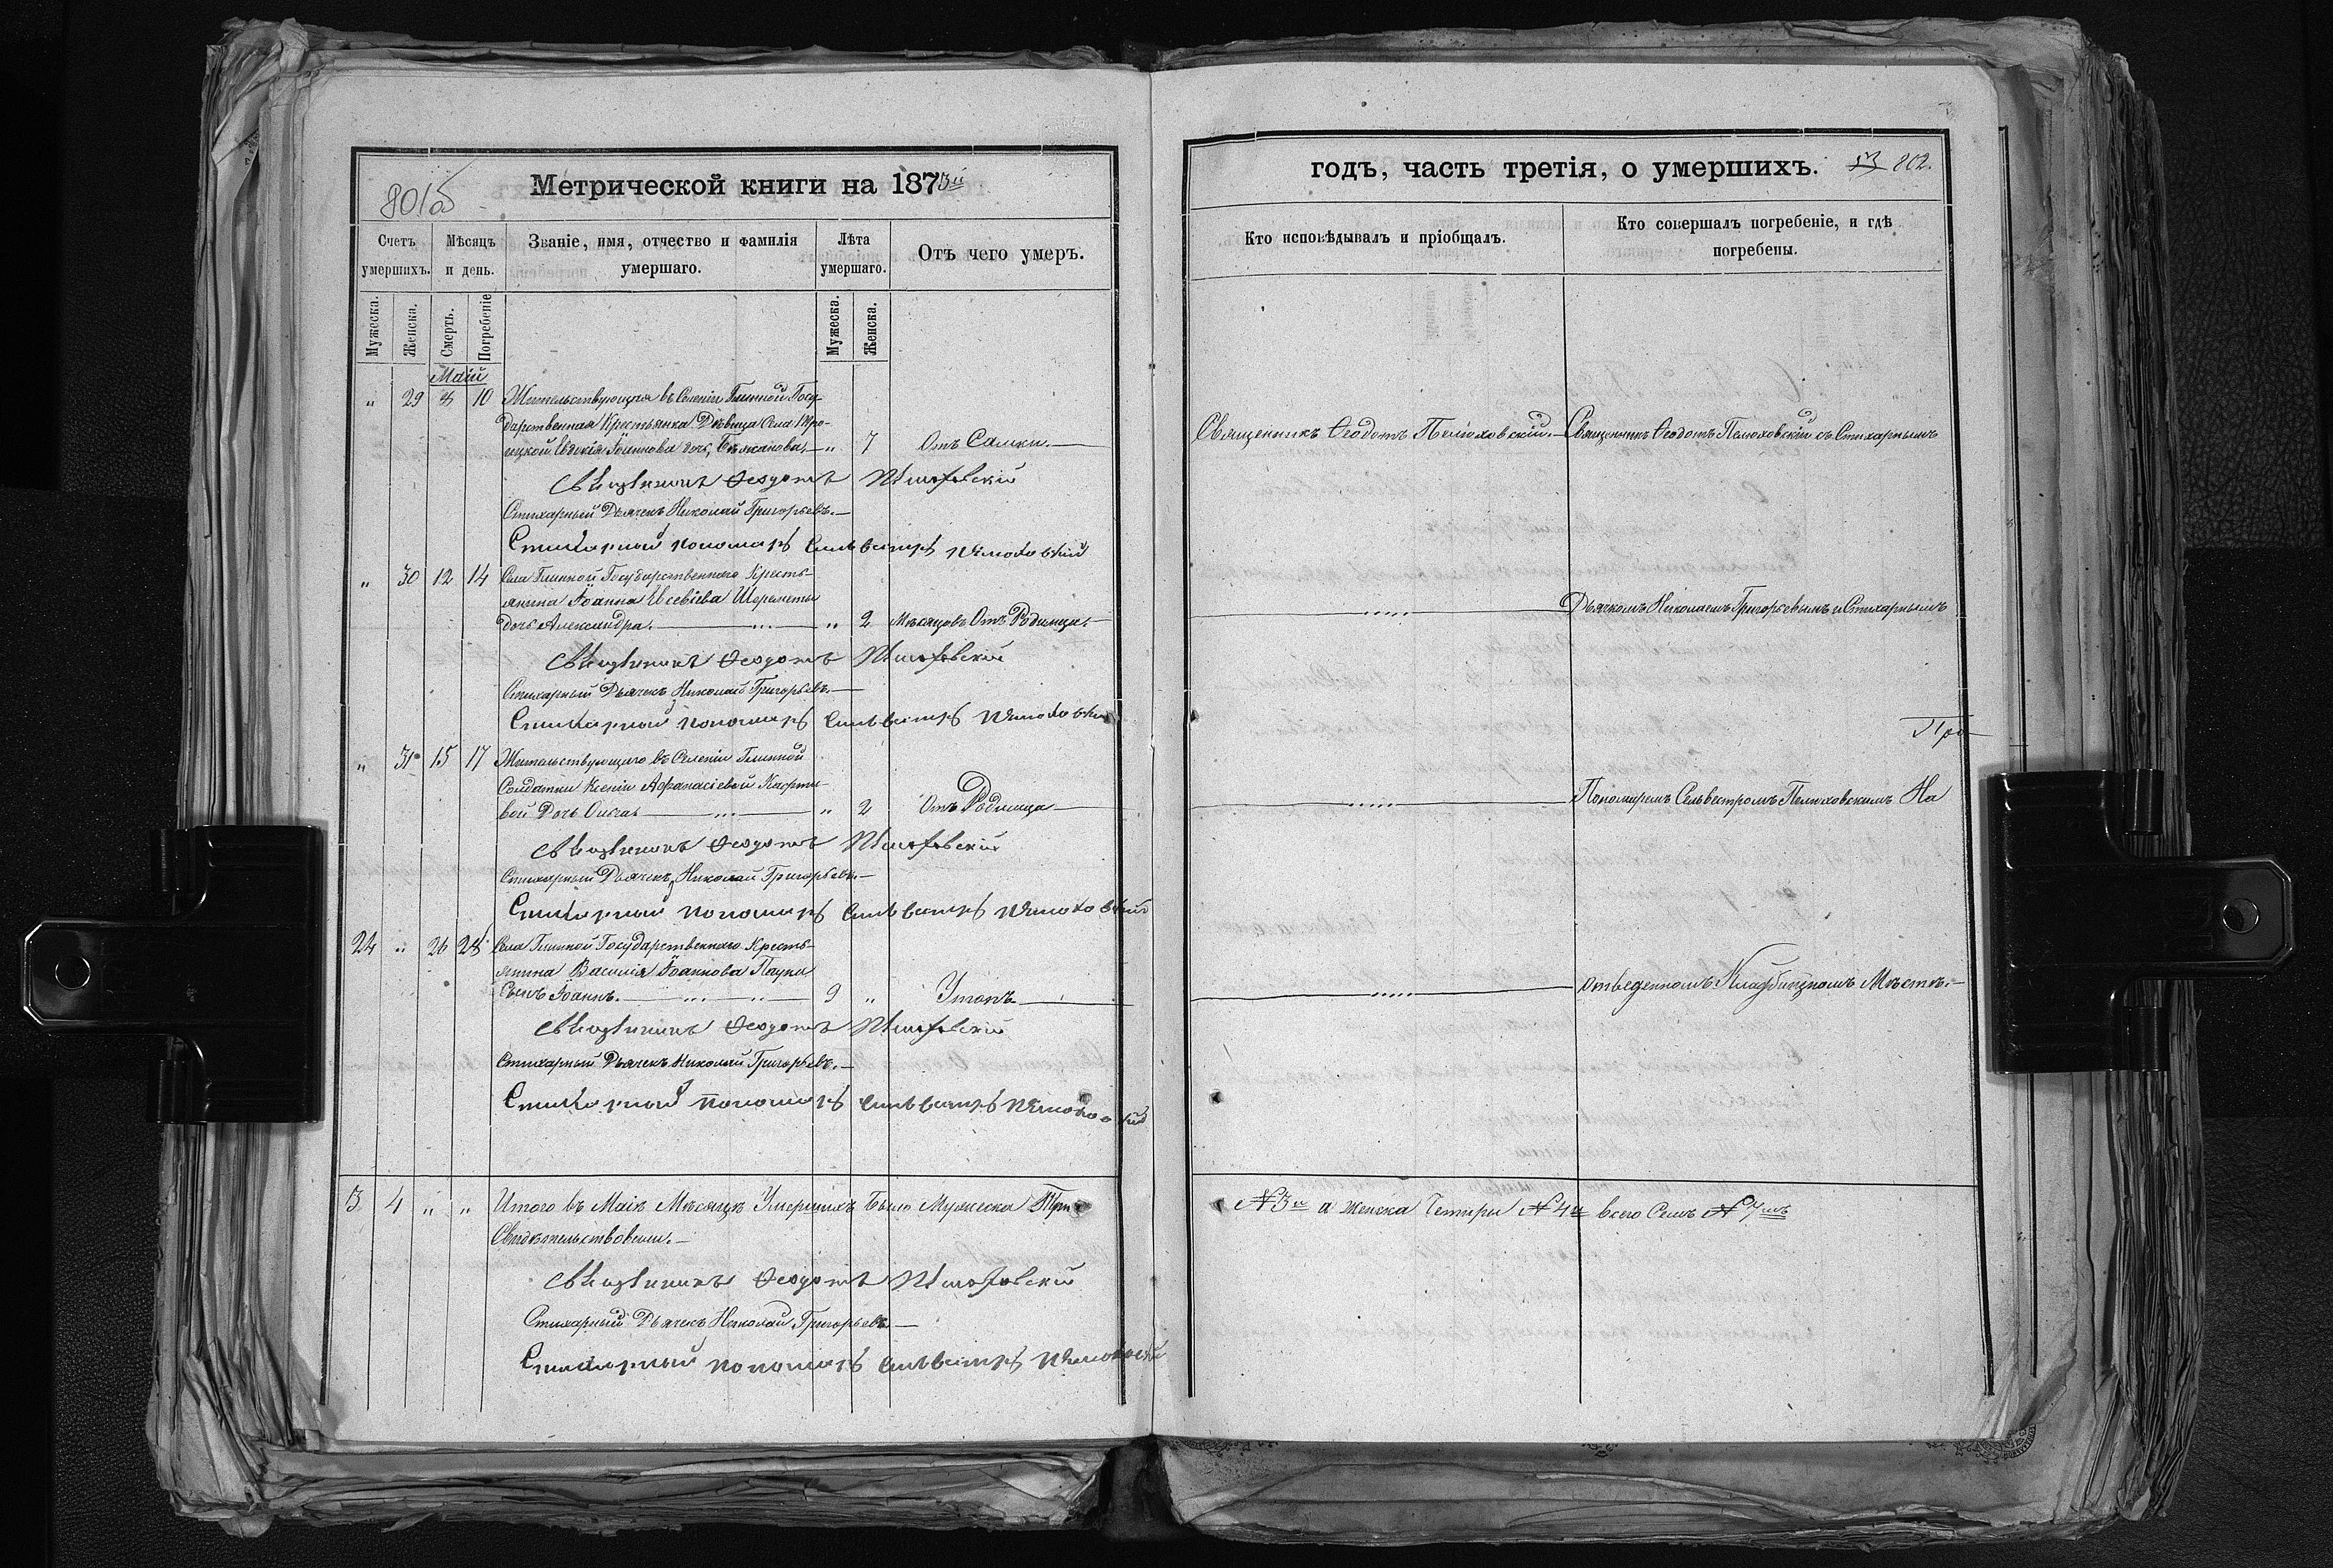 801об
Метрической книги на 1873й
Счетъ умершихъ.
Мѣсяцъ и день.
Званіе, имя, отчество и фамилія умершаго.
Лѣта умершаго.
Отъ чего умеръ.
Мужеска.
Женска.
Смерть.
Погребеніе
Мужеска.
Женска.
Маій
" 29 8 10 Жительствующая въ Селеніи Глинной Госу-
дарственная Крестьянка Дѣвица Села Тро-
ицкой Іоаннова дочь " 7 Отъ
Священникъ Ѳеодотъ Пелюховскій
Стихарный Дьячекъ Николай Григорьевъ.
Стихарный пономарь Сильвестръ Пелюховскій
" 30 12 14 Села Глинной Государственнаго Кресть-
янина Іоанна Евсевіева Шереметы
дочь Александра. " 2 Мѣсяцовъ Отъ Родимца.
Священникъ Ѳеодотъ Пелюховскій
Стихарный Дьячекъ Николай Григорьевъ.
Стихарный пономарь Сильвестръ Пелюховскій
" 31 15 17 Жительствующаго въ Селеніи Глинной
Солдатки Ксеніи Аѳанасіевой
вой Дочь " 2 Отъ Родимца
Священникъ Ѳеодотъ Пелюховскій
Стихарный Дьячекъ Николай Григорьевъ
Стихарный пономарь Сильвестръ Пелюховскій
24 " 26 28 Села Глинной Государственнаго Кресть-
янина Василія Іоаннова Паука
Сынъ Іоаннъ. 9 " Утопъ
Священникъ Ѳеодотъ Пелюховскій
Стихарный Дьячекъ Николай Григорьевъ.
Стихарный пономарь Сильвестръ Пелюховскій
3 4 " " Итого въ Маіѣ Мѣсяцѣ Умершихъ Было Мужеска Три
Свидѣтельствовали.
Священникъ Ѳеодотъ Пелюховскій
Стихарный Дьячекъ Николай Григорьевъ
Стихарный пономарь Сильвестръ Пелюховскій
годъ, часть третія, о умершихъ. 53 802.
Кто исповѣдывалъ и пріобщалъ.
Кто совершалъ погребеніе, и гдѣ погребены.
Священникъ Ѳеодотъ Пелюховскій. Священникъ Ѳеодотъ Пелюховскій съ Стихарнымъ
Дьячкомъ Николаемъ Григорьевымъ и Стихарнымъ
Пономаремъ Сельвестромъ Пелюховскимъ На
отведенномъ Кладбищномъ Мѣстѣ.
№ 3й а женска Четыри № 4и всего Семъ № 7мъ